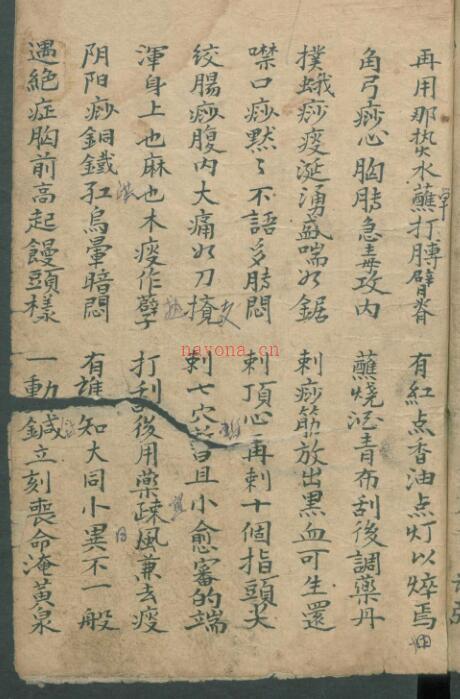 再用那熱水蘸打膊臂脊 有紅点香油点灯以焠焉
角弓痧心胸脹急毒攻内 蘸燒酒青布刮後調藥丹
撲蛾痧痰涎湧盛喘如鋸 刺痧筋放出黑血可生還
噤口痧默〻不語多脹悶 刺頂心再刺十個指頭尖
絞腸痧腹内大痛如刀攪 刺七穴 且小愈審的端
渾身上也麻也木痰作孽 打刮後用藥疎風兼去痰
阴阳痧銅鐵 烏暈暗悶 有誰知大同小異不一般
遇絶症胸前高起饅頭樣 一動鍼立刻喪命淹黃泉
nayona.cn